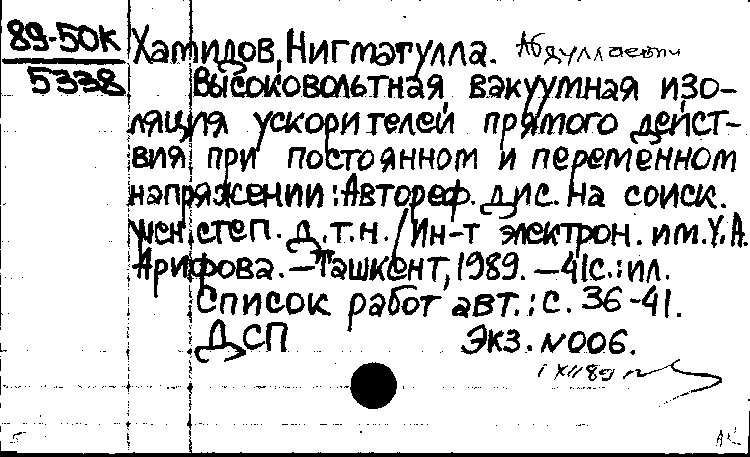 89-50К
5338
Хамидов, Нигматулла. Абдуллаевич
Высоковольтная вакуумная изо-
ляция ускорителей прямого дейст-
вия при постоянном и переменном
напряжении: Автореф. дис. на соиск.
учен. степ. д.т.н. / Ин-т электрон. им. У.А.
Арифова. – Ташкент, 1989. – 41с.: ил.
Список работ авт.: с. 36-41.
ДСП Экз. N006.
1 XII 89